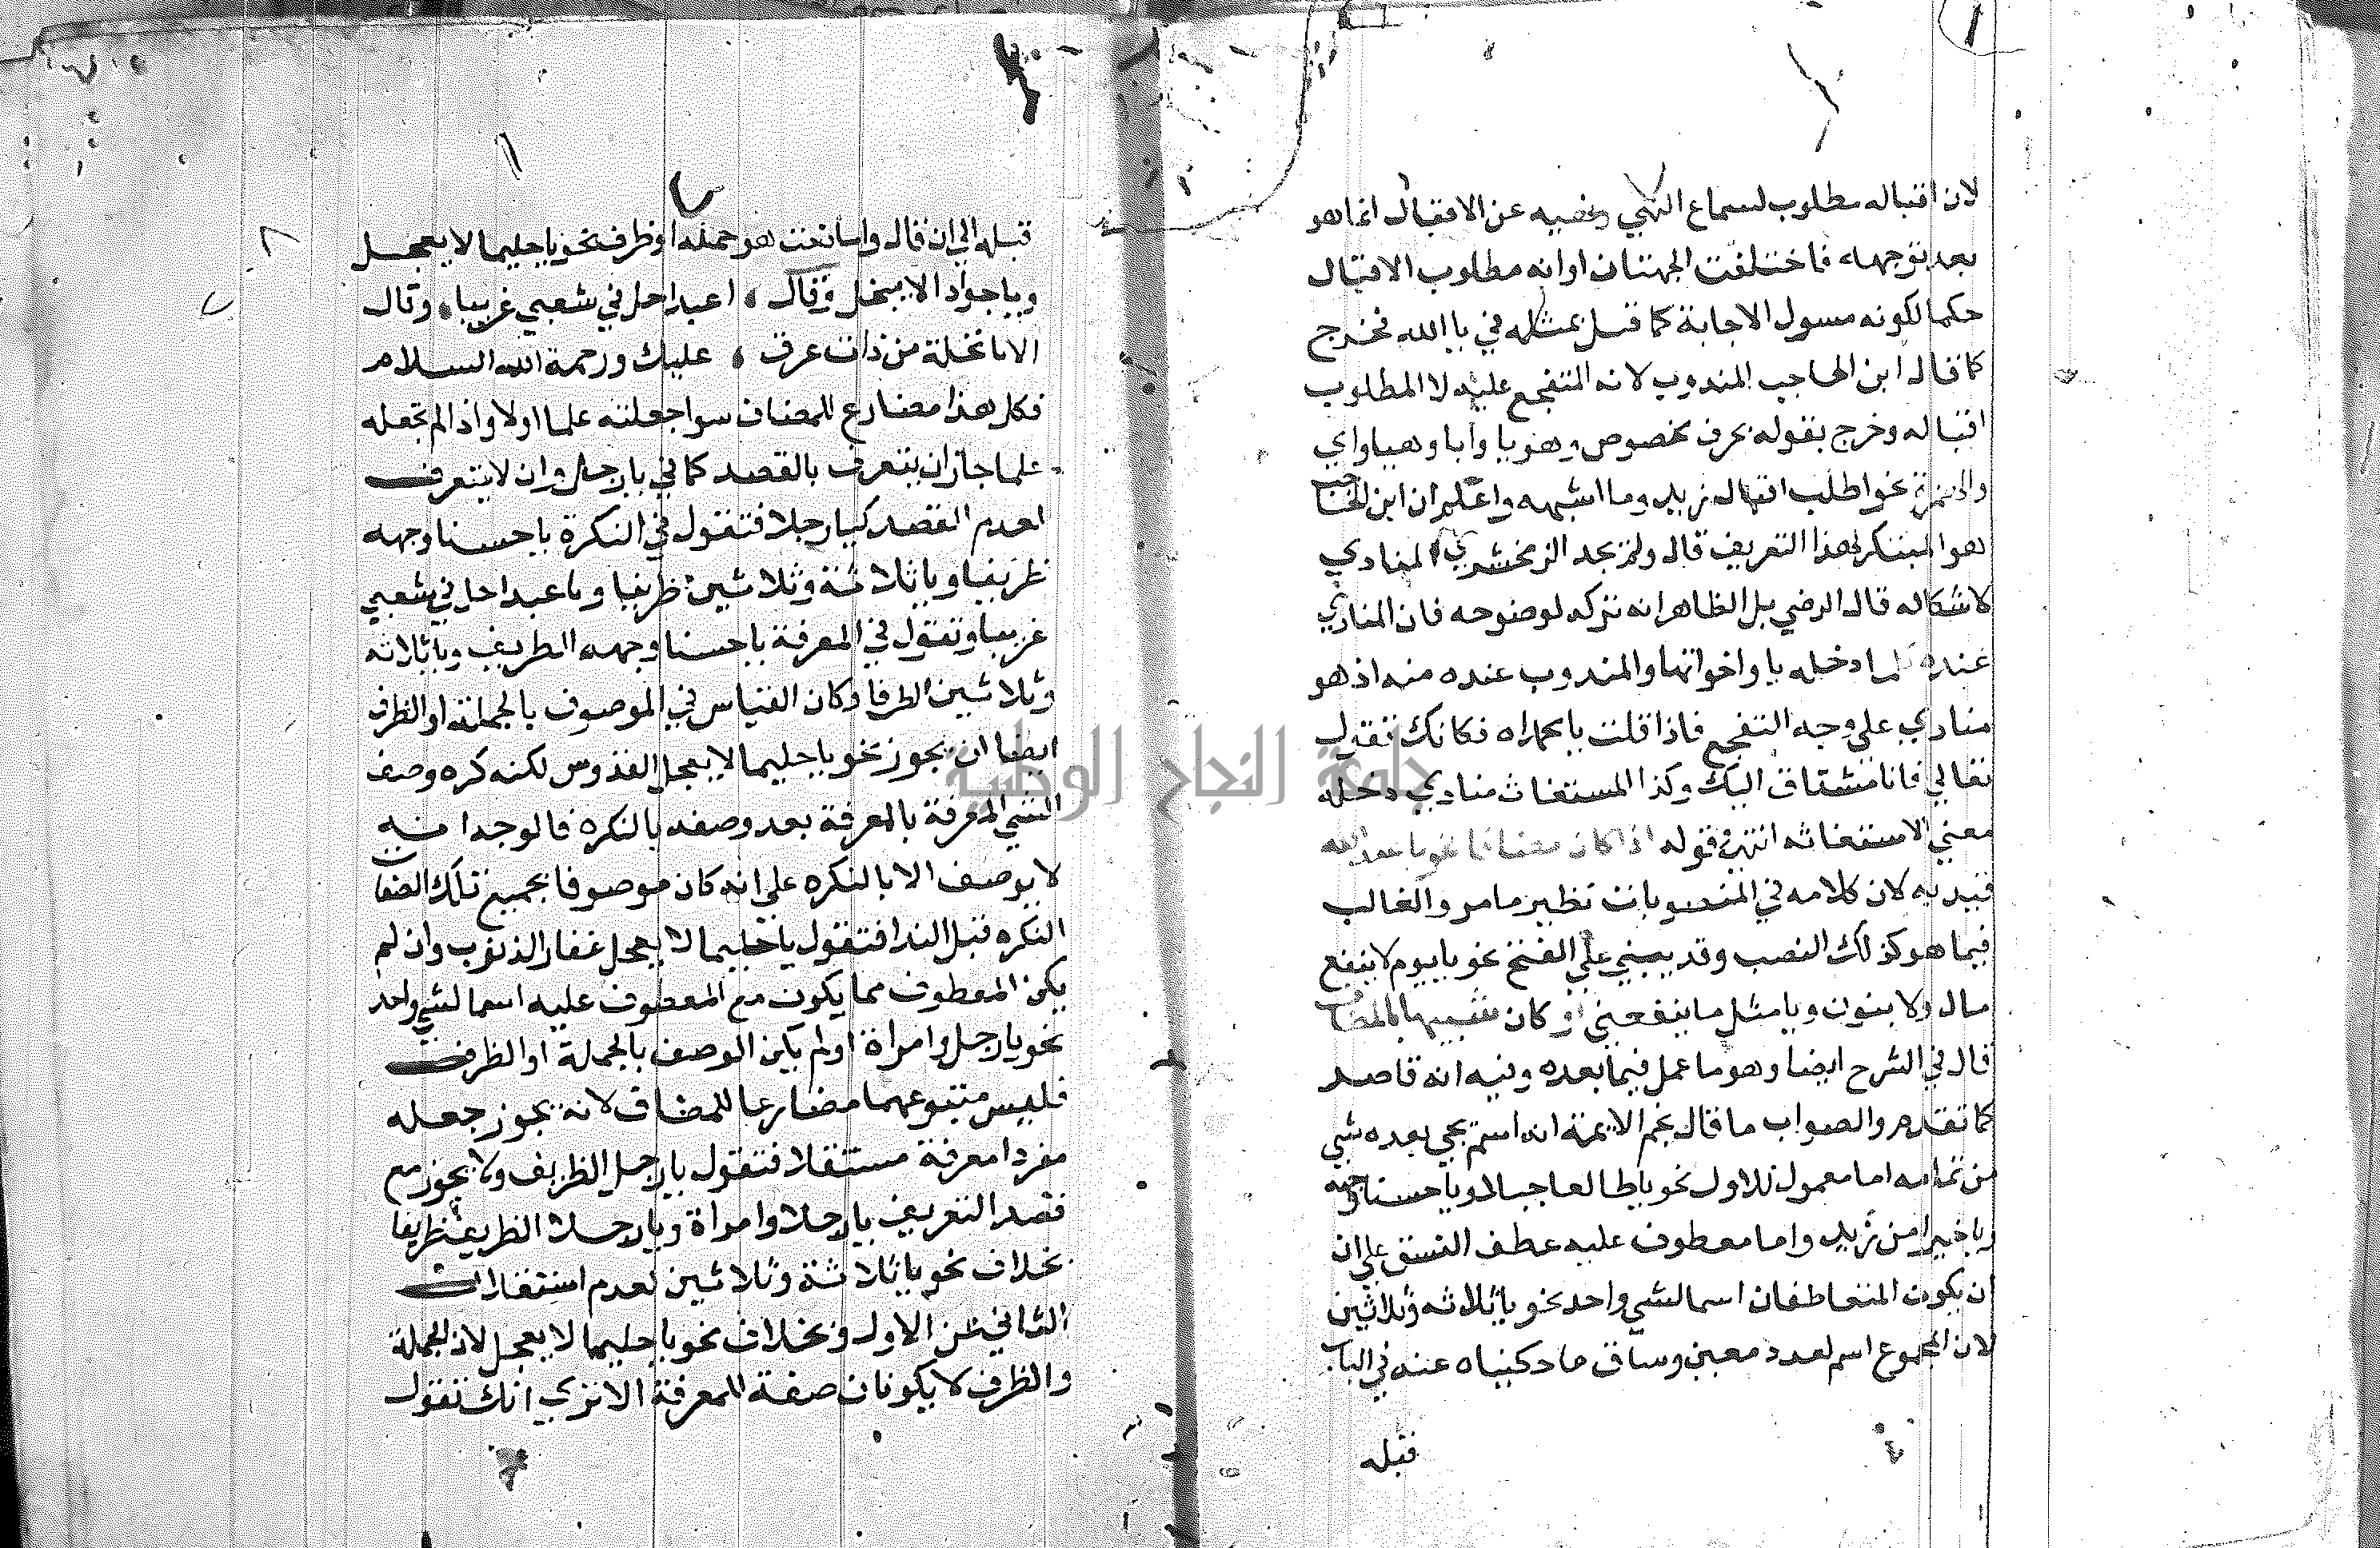 لان اقباله مطلوب لسماع النهي ونهيه عن الاقبال انما هو
بعد توجهه فاختلفت الجهتان او انه مطلوب الاقبال
حكما لكونه مسول الاجابة كما قيل بمثله في يا الله فخرج
كما قال ابن الحاجب المندوب لانه المتفجع عليه لا المطلوب
اقباله وخرج بقوله بحرف مخصوص وهو يا وايا وهيا واي
والهمزة نحو اطلب اقبال زيد وما اشبهه واعلم ان ابن الحاجب
هو المبتكر لهذا التعريف قال ولم يحد الزمخشري المنادي
لاشكاله قال الرضي بل الظاهر انه تركه لوضوحه فان المنادي
عنده كلما دخله يا واخواتها والمندوب عنده منه اذ هو
منادي علي وجه التفجع فاذا قلت يا محمداه فكانك تقول
تعالي فانا مشتاق اليك وكذا المستغاث منادي دخله
معني الاستغاثه انتهي قوله اذا كان مضافا نحو يا عبد الله
قيد به لان كلامه في المنصوبات نظير ما مر والغالب
فيما هو كذلك النصب وقد يبني علي الفتح نحو يا يوم لا ينفع
مال ولا بنون ويا مثل ما ينفعني او كان شبيها بالمضاف
قال في الشرح ايضا وهو ما عمل فيما بعده وفيه انه قاصد
كما تقدم والصواب ما قال نجم الايمة انه اسم يجي بعده شي
من تمامه اما معمول للاول نحو يا طالعا جبالا ويا حسنا وجهه
ويا خيرا من زيد واما معطوف عليه عطف النسق علي ان
ان يكون المتعاطفان اسما لشي واحد نحو يا ثلاثه وثلاثين
لان المجموع اسم لعدد معين وساق ما حكيناه عنه في الباب
قبله
قبله الي ان قال واما نعت هو جملة او ظرف نحو يا حليما لا يعجل
ويا جوادا لا يبخل وقال اعبدا حل في شعبي غريبا وقال
الا يا نخلة من ذات عرق عليك ورحمة الله السلام
فكل هذا مضارع للمضاف سوا جعلته علما اولا واذا لم تجعله
علما جاز ان يتعرف بالقصد كما في يا رجل وان لا يتعرف
لعدم القصد كيا رجلا فتقول في النكرة يا حسنا وجهه
ظريفا ويا ثلاثة وثلاثين ظريفا ويا عبدا حل في شعبي
غريبا وتقول في المعرفة يا حسنا وجهه الظريف ويا ثلاثه
وثلاثين الظرفا وكان القياس في الموصوف بالجملة او الظرف
ايضا ان يجوز نحو يا حليما لا يعجل القدوس لكنه كره وصف
الشي المعرفة بالمعرفة بعد وصفه بالنكره فالوجه انه
لا يوصف الا بالنكره علي انه كان موصوفا بجميع تلك الصفات
النكره قبل الندا فتقول يا حليما لا يعجل غفار الذنوب وان لم
يكن المعطوف مما يكون مع المعطوف عليه اسما لشي واحد
نحو يا رجل وامراة او لم يكن الوصف بالجملة او الظرف
فليس متبوعهما مضارعا للمضاف لانه يجوز جعله
مفردا معرفة مستقلا فتقول يا رجل الظريف ولا يجوز مع
قصد التعريف يا رجلا وامراة ويا رجلا الظريف ظريفا
بخلاف نحو يا ثلاثة وثلاثين لعدم استقلال
الثاني عن الاول وبخلاف نحو يا حليما لا يعجل لان الجملة
والظرف لا يكونان صفة للمعرفة الا تري انك تقول
جامعة النجاح الوطنية